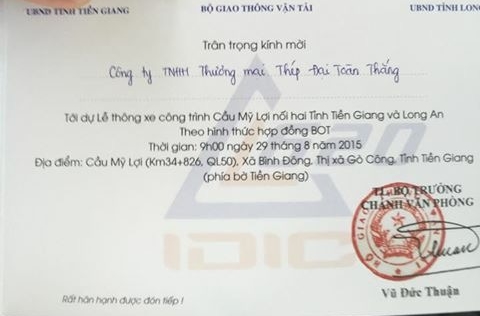 UBND TỈNH TIỀN GIANG BỘ GIAO THÔNG VẬN TẢI UBND TỈNH LONG
Trân trọng kính mời
Công ty TNHH Thương mại Thép Đại Toàn Thắng
Tới dự Lễ thông xe công trình Cầu Mỹ Lợi nối hai Tỉnh Tiền Giang và Long An
Theo hình thức hợp đồng BOT
Thời gian: 9h00 ngày 29 tháng 8 năm 2015
Địa điểm: Cầu Mỹ Lợi (Km34+826, QL50), Xã Bình Đông, Thị xã Gò Công, Tỉnh Tiền Giang
(phía bờ Tiền Giang)
TL. BỘ TRƯỞNG
CHÁNH VĂN PHÒNG
IDICO
Vũ Đức Thuận
Rất hân hạnh được đón tiếp !